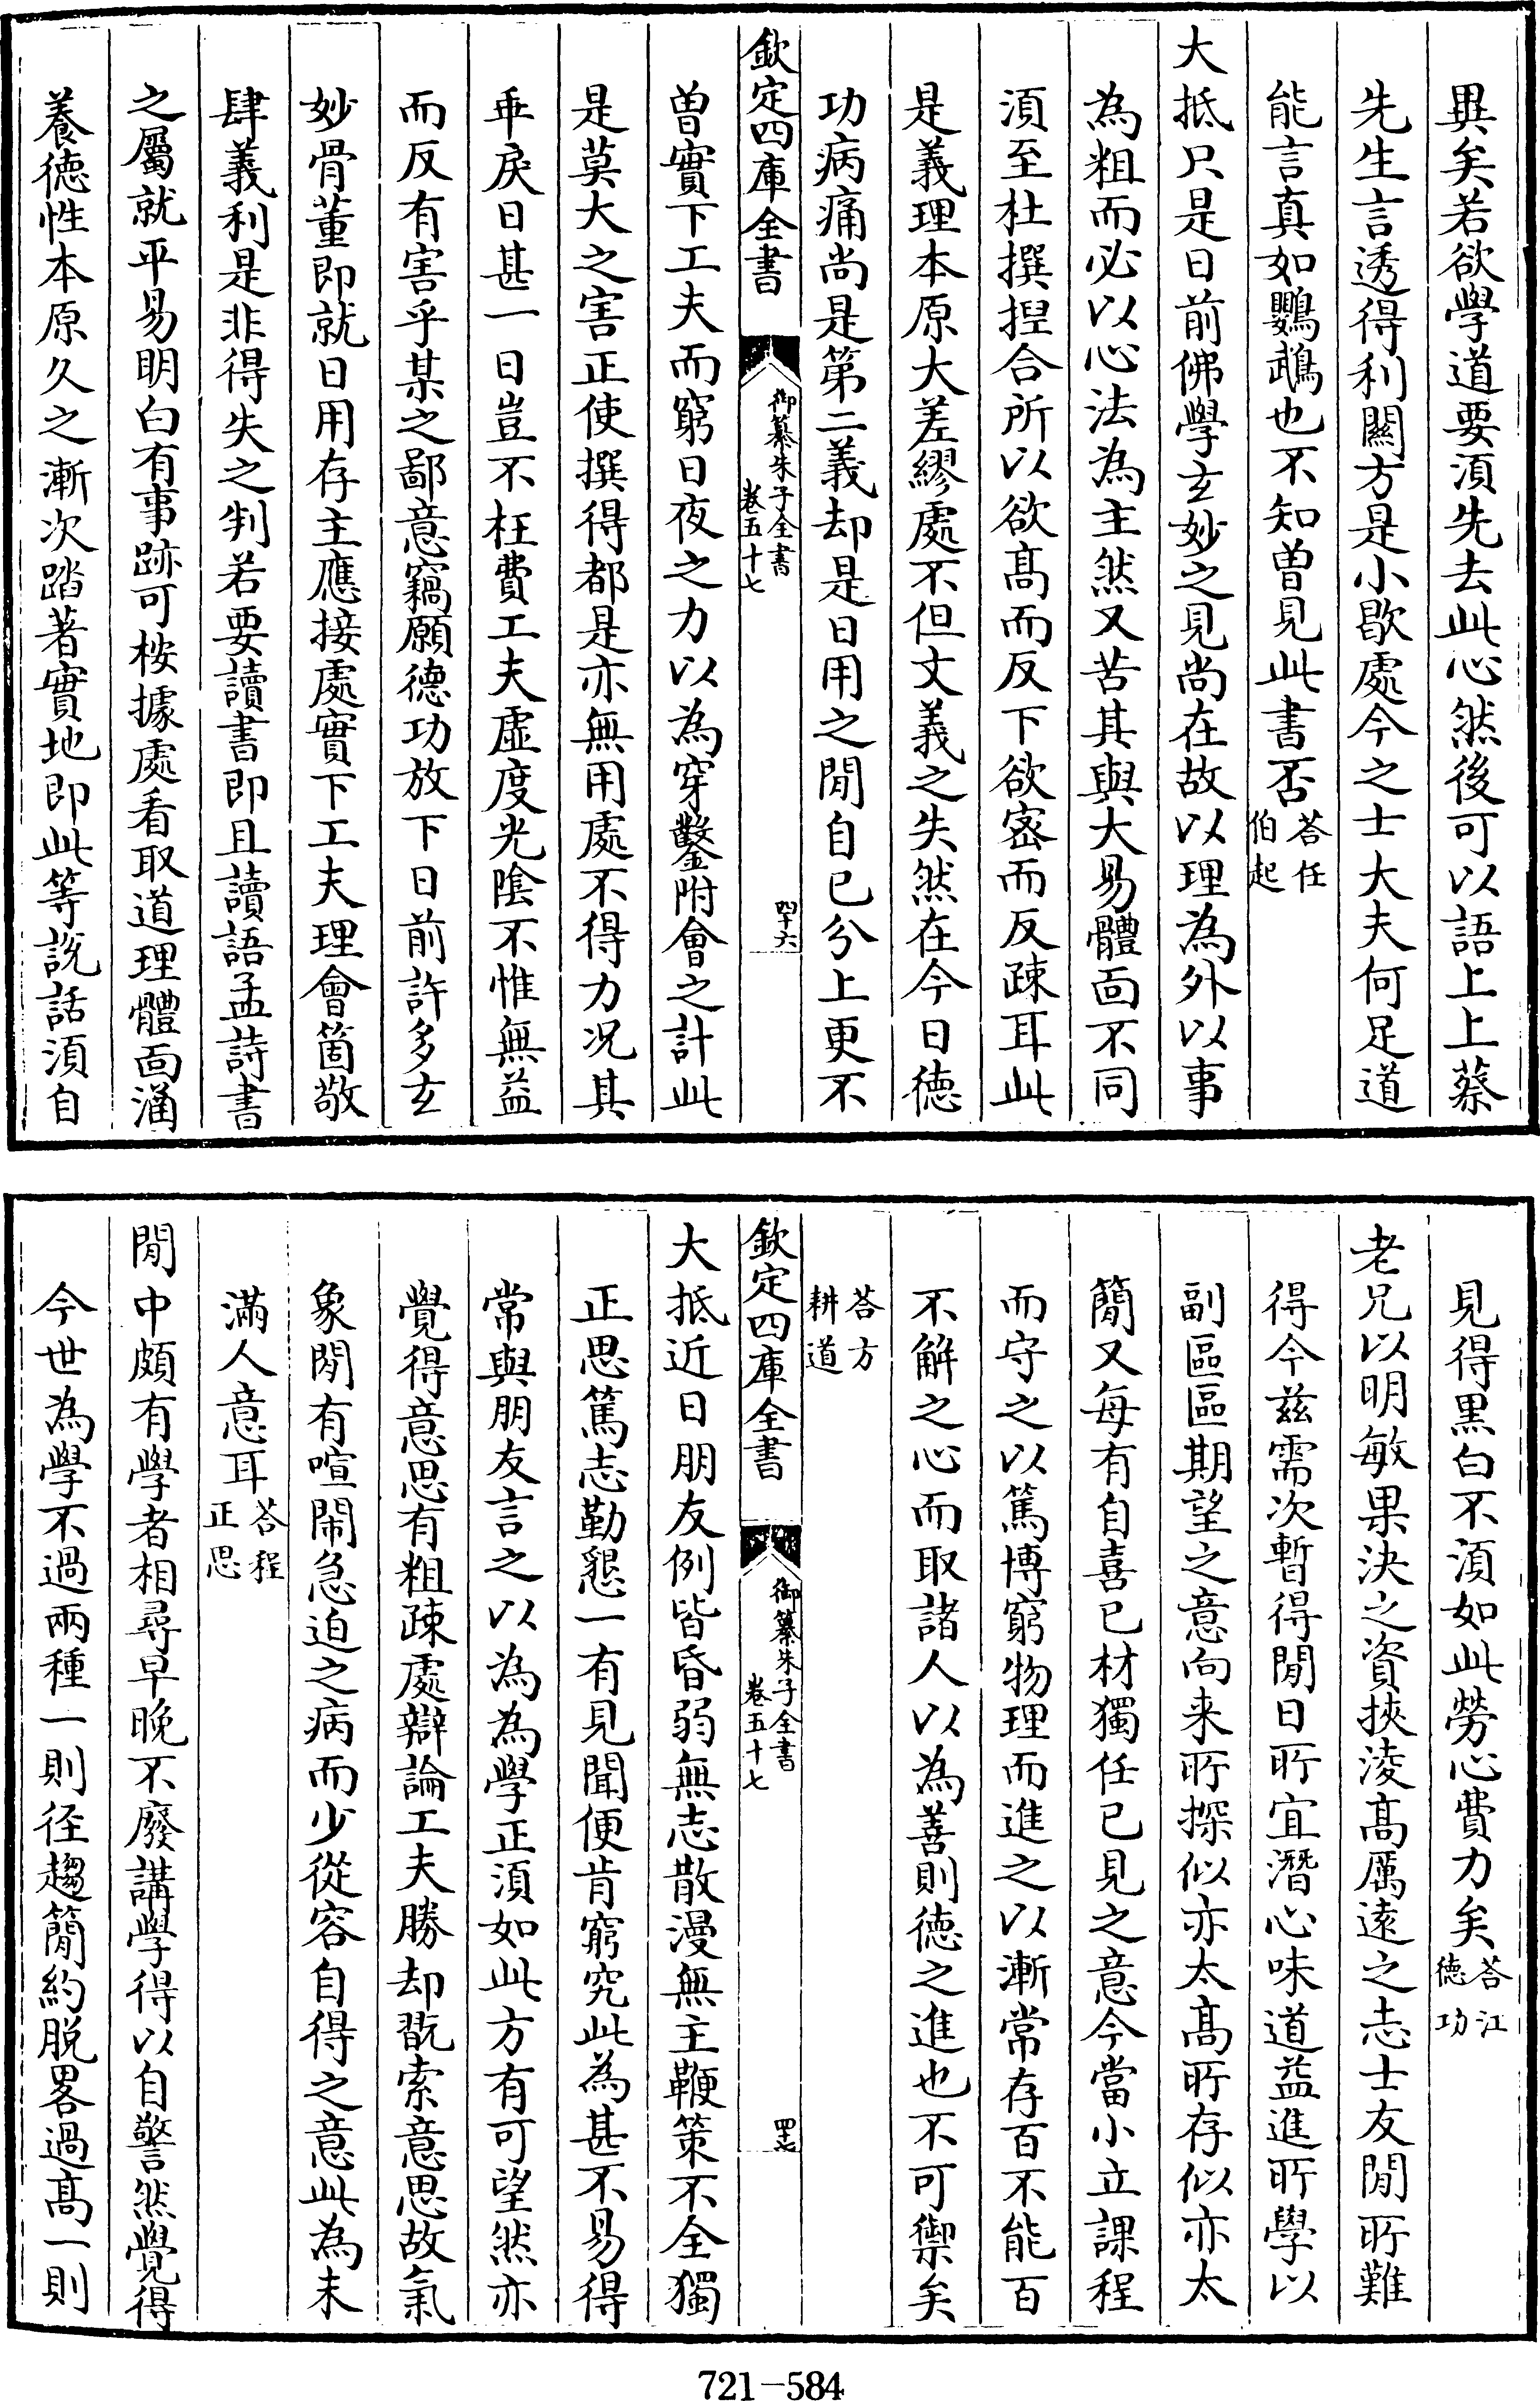 異矣若欲學道要湏先去此心然後可以語上上蔡
先生言透得利關方是小歇處今之士大夫何足道
能言真如鸚鵡也不知曽見此書否答任伯起
大抵只是日前佛學玄妙之見尚在故以理為外以事
為粗而必以心法為主然又苦其與大易體面不同
湏至杜撰揑合所以欲髙而反下欲宻而反疎耳此
是義理本原大差繆處不但文義之失然在今日徳
功病痛尚是第二義却是日用之閒自已分上更不
欽定四庫全書
御纂朱子全書
卷五十七
四十六
曽實下工夫而窮日夜之力以為穿鑿附會之計此
是莫大之害正使撰得都是亦無用處不得力况其
乖戾日甚一日豈不枉費工夫虛度光隂不惟無益
而反有害乎某之鄙意竊願徳功放下日前許多玄
妙骨董即就日用存主應接處實下工夫理會箇敬
肆義利是非得失之判若要讀書即且讀語孟詩書
之屬就平易明白有事跡可桉據處看取道理體面涵
養徳性本原久之漸次踏著實地即此等説話湏自
見得黒白不湏如此勞心費力矣答江徳功
老兄以明敏果決之資挾淩髙厲逺之志士友閒所難
得今兹需次暫得閒日所宜潛心味道益進所學以
副區區期望之意向来所探似亦太髙所存似亦太
簡又每有自喜已材獨任已見之意今當小立課程
而守之以篤博窮物理而進之以漸常存百不能百
不解之心而取諸人以為善則徳之進也不可禦矣
答方耕道
欽定四庫全書
御纂朱子全書
卷五十七
四十七
大抵近日朋友例皆昏弱無志散漫無主鞭策不全獨
正思篤志勤懇一有見聞便肯窮究此為甚不易得
常與朋友言之以為為學正湏如此方有可望然亦
覺得意思有粗疎處辯論工夫勝却翫索意思故氣
象閒有喧閙急迫之病而少從容自得之意此為未
滿人意耳答程正思
閒中頗有學者相尋早晚不廢講學得以自警然覺得
今世為學不過兩種一則徑趨簡約脱畧過髙一則
721-584